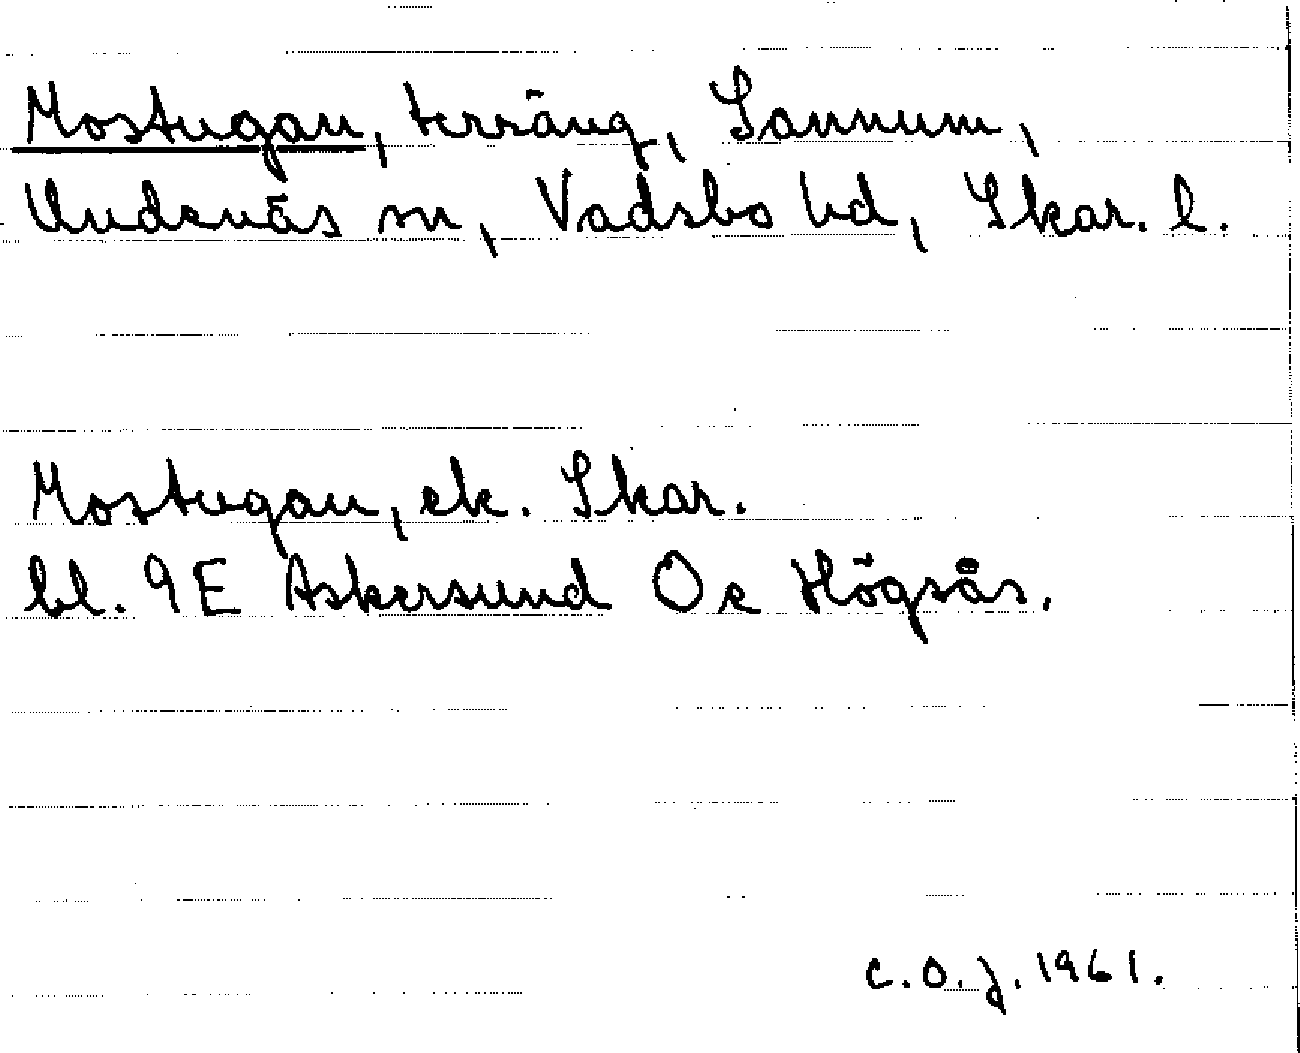 Mostugan, terräng, Sannum,
Undenäs sn, Vadsbo hd, Skar. l.
Mostugan, ek. Skar.
bl. 9E Askersund Oe Högsås.
C.O.J. 1961.